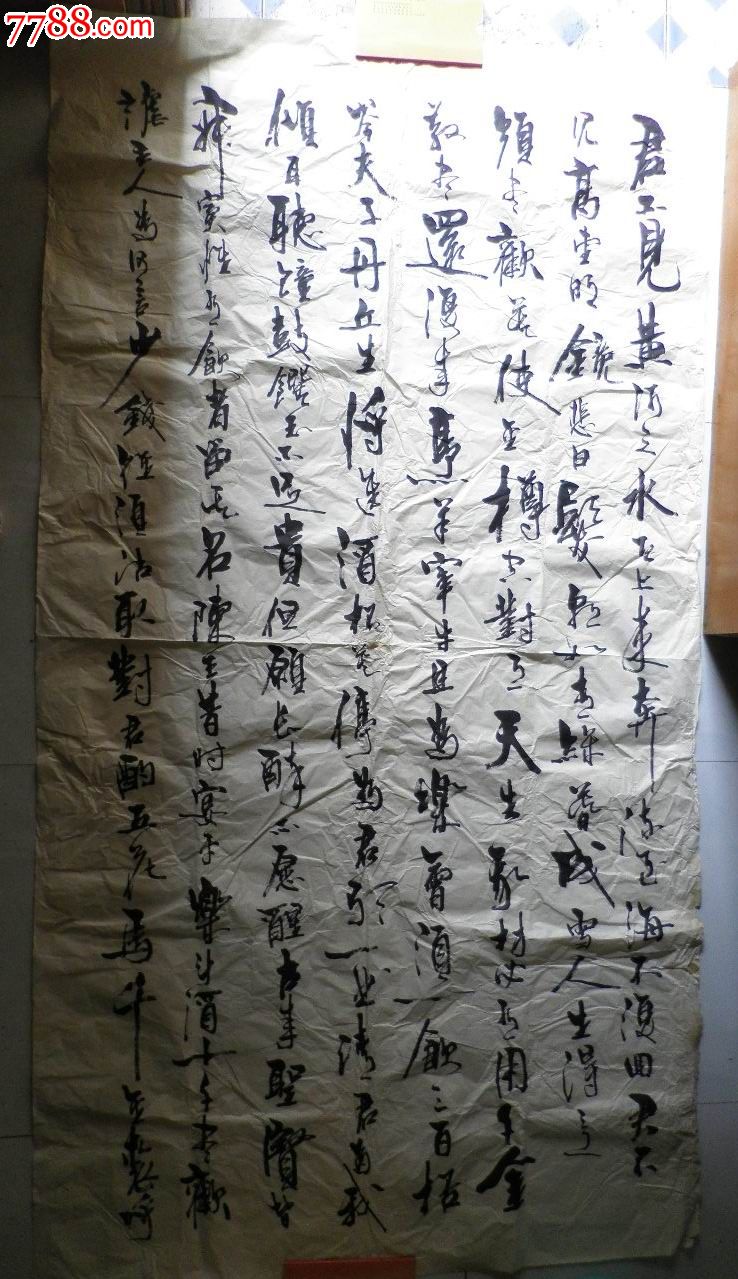 7788.com
君不見黃河之水天上來奔流到海不復回君不
見高堂明鏡悲白髮朝如青絲暮成雪人生得意
須盡歡莫使金樽空對月天生我材必有用千金
散盡還復來烹羊宰牛且為樂會須一飲三百杯
岑夫子丹丘生將進酒杯莫停為君歌一曲請君為我
傾耳聽鐘鼓饌玉不足貴但願長醉不愿醒古來聖賢皆
寂寞惟有飲者留其名陳王昔時宴平樂斗酒十千恣歡
謔主人為何言少錢徑須沽取對君酌五花馬千金裘呼